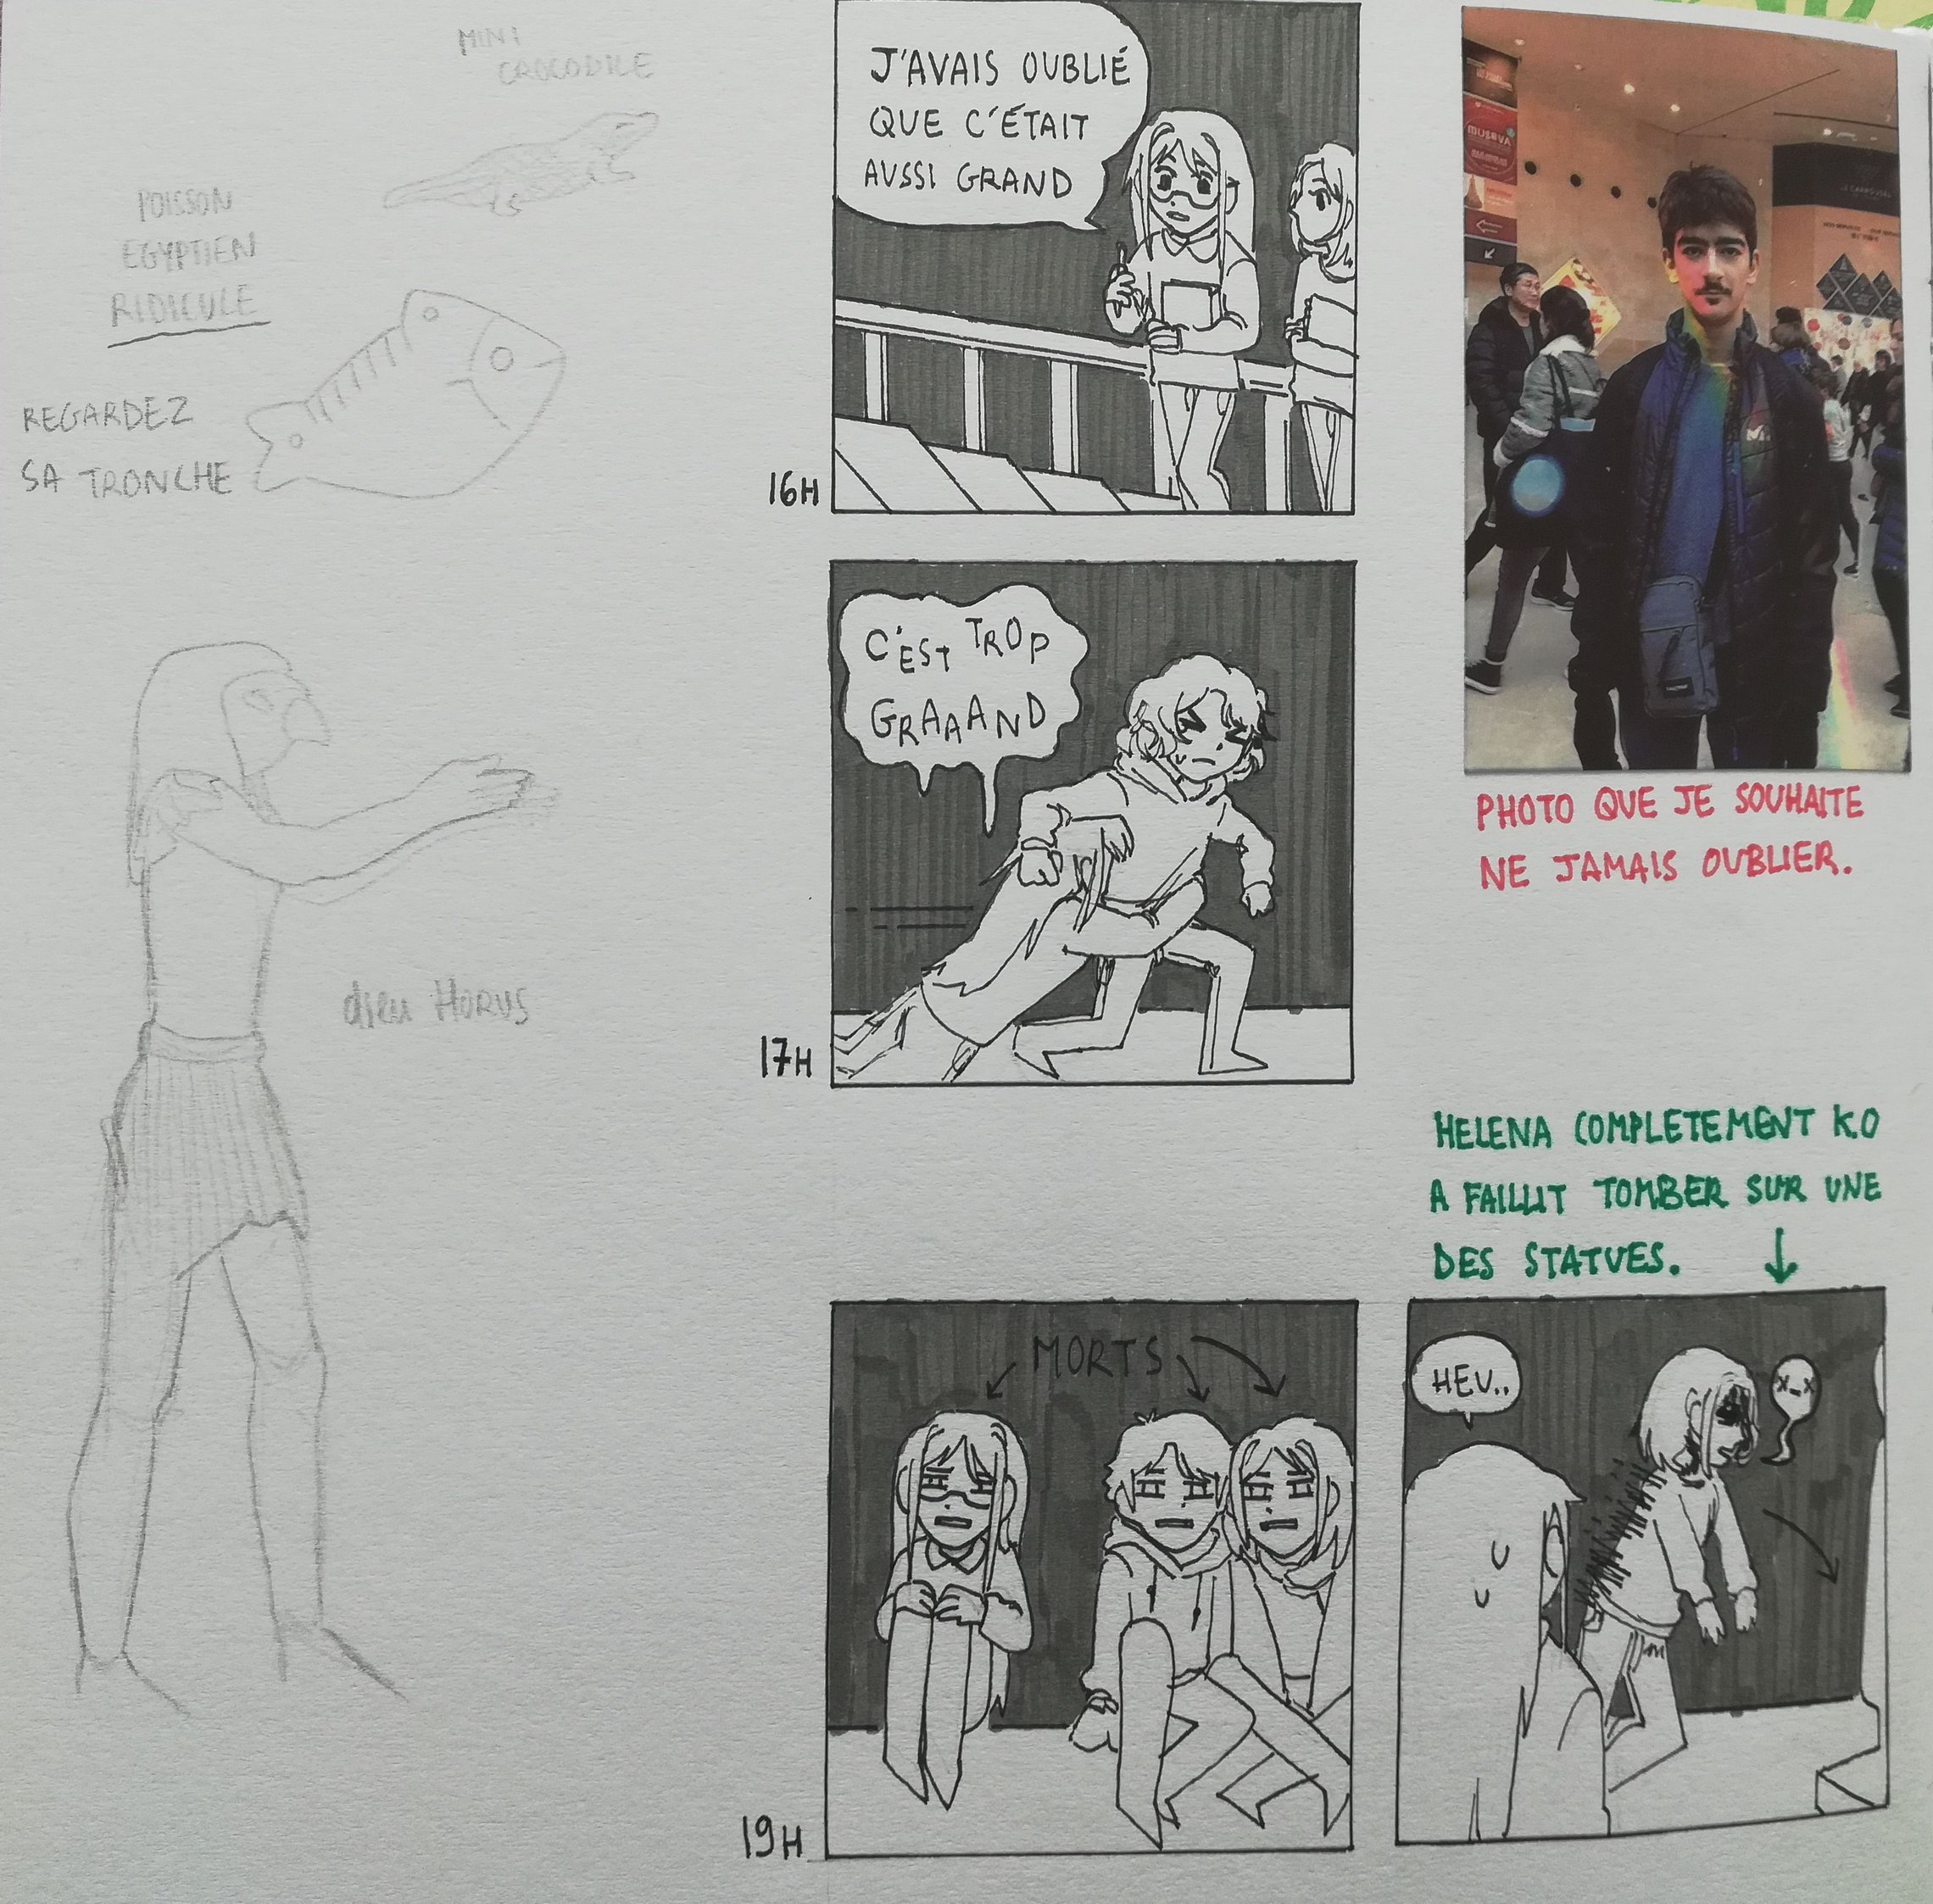 MINI
CROCODILE
POISSON
EGYPTIEN
RIDICULE
REGARDEZ
SA TRONCHE
dieu HORUS
J'AVAIS OUBLIÉ
QUE C'ÉTAIT
AUSSI GRAND
16H
C'EST TROP
GRAAAND
17H
MORTS
19H
MUSEVA
PHOTO QUE JE SOUHAITE
NE JAMAIS OUBLIER.
HELENA COMPLETEMENT K.O
A FAILLIT TOMBER SUR UNE
DES STATUES.
HEU..
X_X